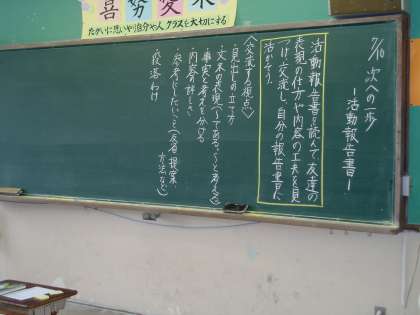 喜努愛
たがいに思いや涼分や人クラスを大切にする
7/10 次への一歩
―活動報告書―
活動報告書を読んで、友達の
表現の仕方や内容の工夫を見
つけ、交流し、自分の報告書に
活かそう。
<交流する視点>
・見出しの立て方
・文末の表現(〜である。〜と考える)
・事実と考えを分ける
・内容の詳しさ
・参考にしたいこと(反省、提案、
方法など)
・段落わけ